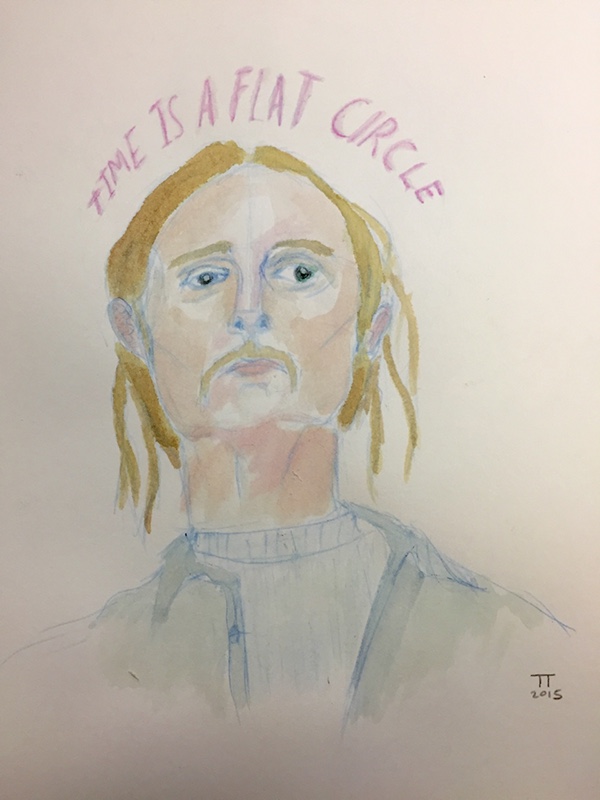 TIME IS A FLAT CIRCLE
TT
2015